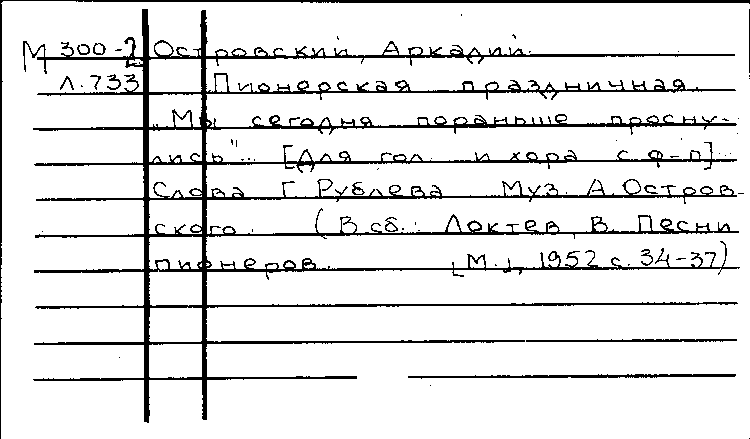 М 300-2 Островский, Аркадий.
Л.733 Пионерская праздничная.
„Мы сегодня пораньше просну-
лись"... [Для гол. и хора с ф-п]
Слова Г. Рублева Муз. А. Остров-
ского. (В сб.: Локтев, В. Песни
пионеров. [М.], 1952 с. 34-37)